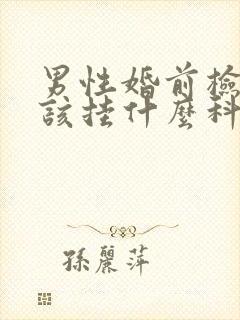 男性婚前檢
該挂什麼科
孫麗萍